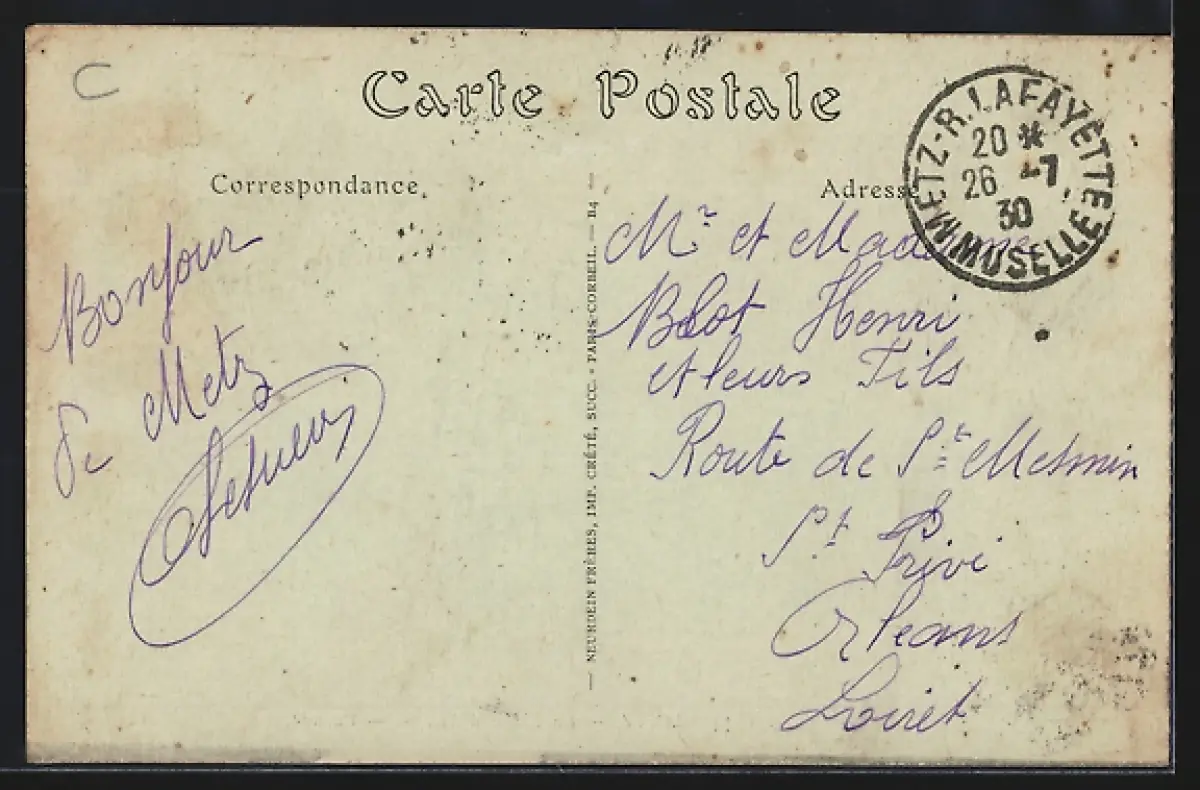 C
Carte Postale
METZ-R. LAFAYETTE
20 *
26 -7
30
MOSELLE
Correspondance.
Adresse
Bonjour
de Metz
Mr et Madame
Blot Henri
et leurs Fils
Route de St Mesmin
St Privé
Orleans
Loiret
— NEURDEIN FRÈRES, IMP. CRÉTÉ, SUCC. - PARIS-CORBEIL. — B4 —